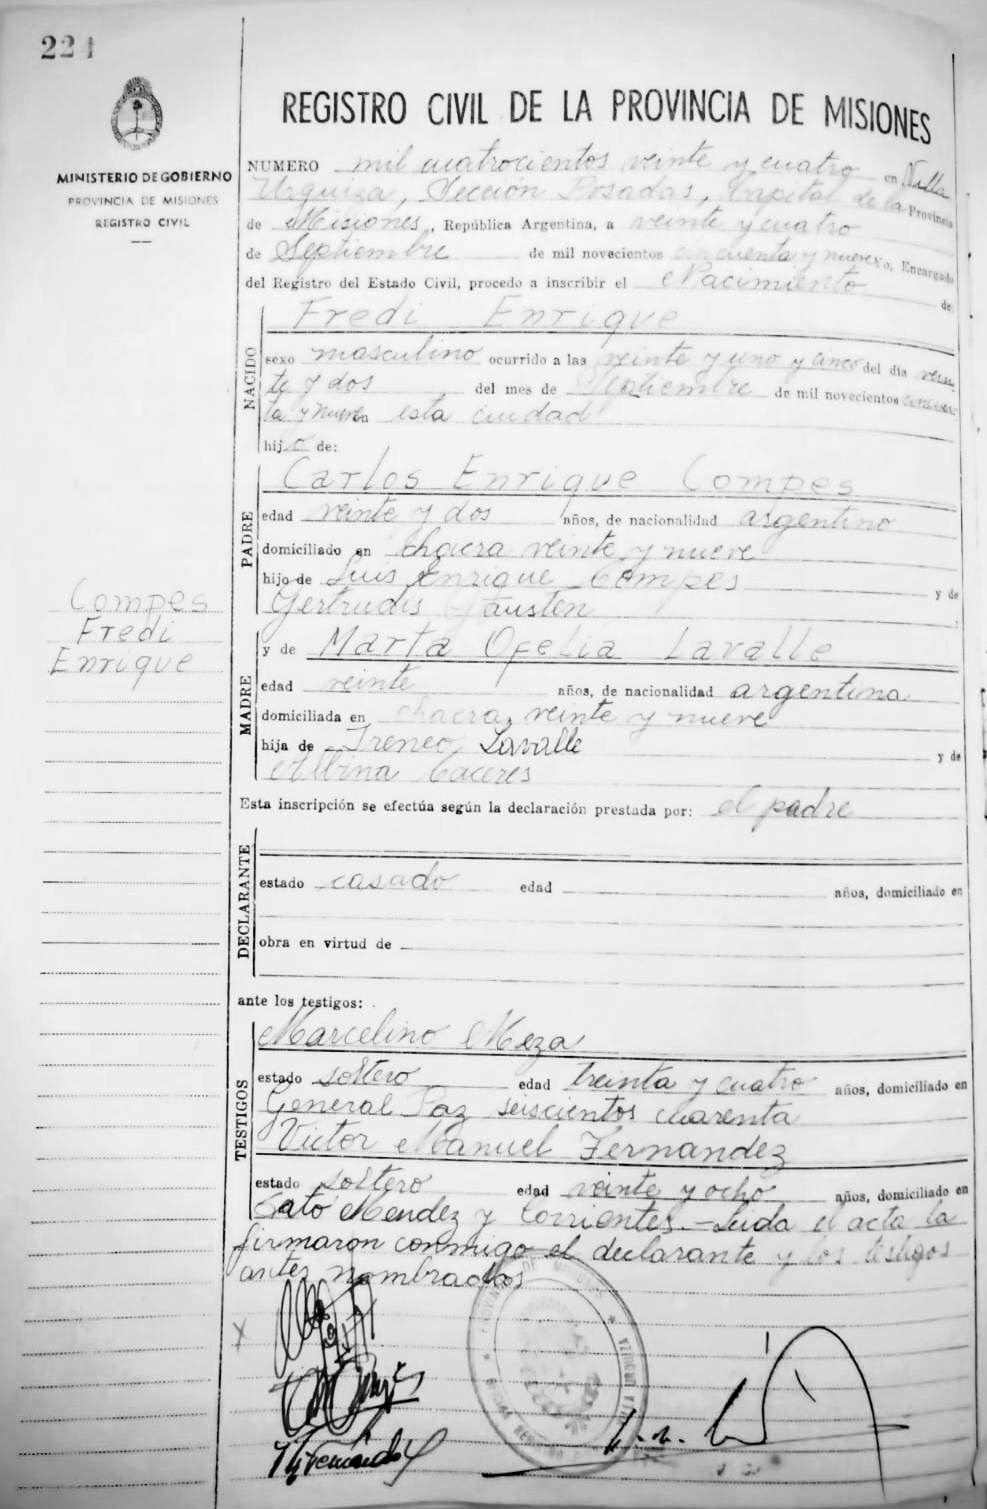 224
MINISTERIO DE GOBIERNO
PROVINCIA DE MISIONES
REGISTRO CIVIL
REGISTRO CIVIL DE LA PROVINCIA DE MISIONES
NUMERO mil cuatrocientos veinte y cuatro en Villa
Urquiza, Sección Posadas, Capital de la Provincia
de Misiones, República Argentina, a veinte y cuatro
de Septiembre de mil novecientos cincuenta y nueve Yo, Encargado
del Registro del Estado Civil, procedo a inscribir el Nacimiento de:
NACIDO
Fredi Enrique
sexo masculino ocurrido a las veinte y uno y cinco del día vein
te y dos del mes de Septiembre de mil novecientos cincuen
ta y nueve en esta ciudad
hijo de:
PADRE
Carlos Enrique Compes
edad veinte y dos años, de nacionalidad argentino
domiciliado en chacra veinte y nueve
hijo de Luis Enrique Compes y de
Gertrudis
Compes
Fredi
Enrique
MADRE
y de Marta Ofelia Lavalle
edad veinte años, de nacionalidad argentina
domiciliada en chacra veinte y nueve
hija de Ireneo Lavalle y de
Albina Caceres
Esta inscripción se efectúa según la declaración prestada por: el padre
DECLARANTE
estado casado edad años, domiciliado en
obra en virtud de
ante los testigos:
TESTIGOS
Marcelino Meza
estado soltero edad treinta y cuatro años, domiciliado en
General Paz seiscientos cuarenta
Victor Manuel Fernandez
estado soltero edad veinte y ocho años, domiciliado en
Mendez y Corrientes.- Leida el acta la
firmaron conmigo el declarante y los testigos
antes nombrados